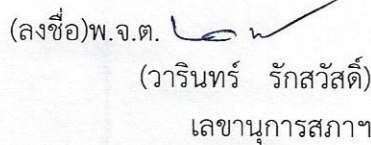 (ลงชื่อ)พ.จ.ต.
(วารินทร์ รักสวัสดิ์)
เลขานุการสภาฯ